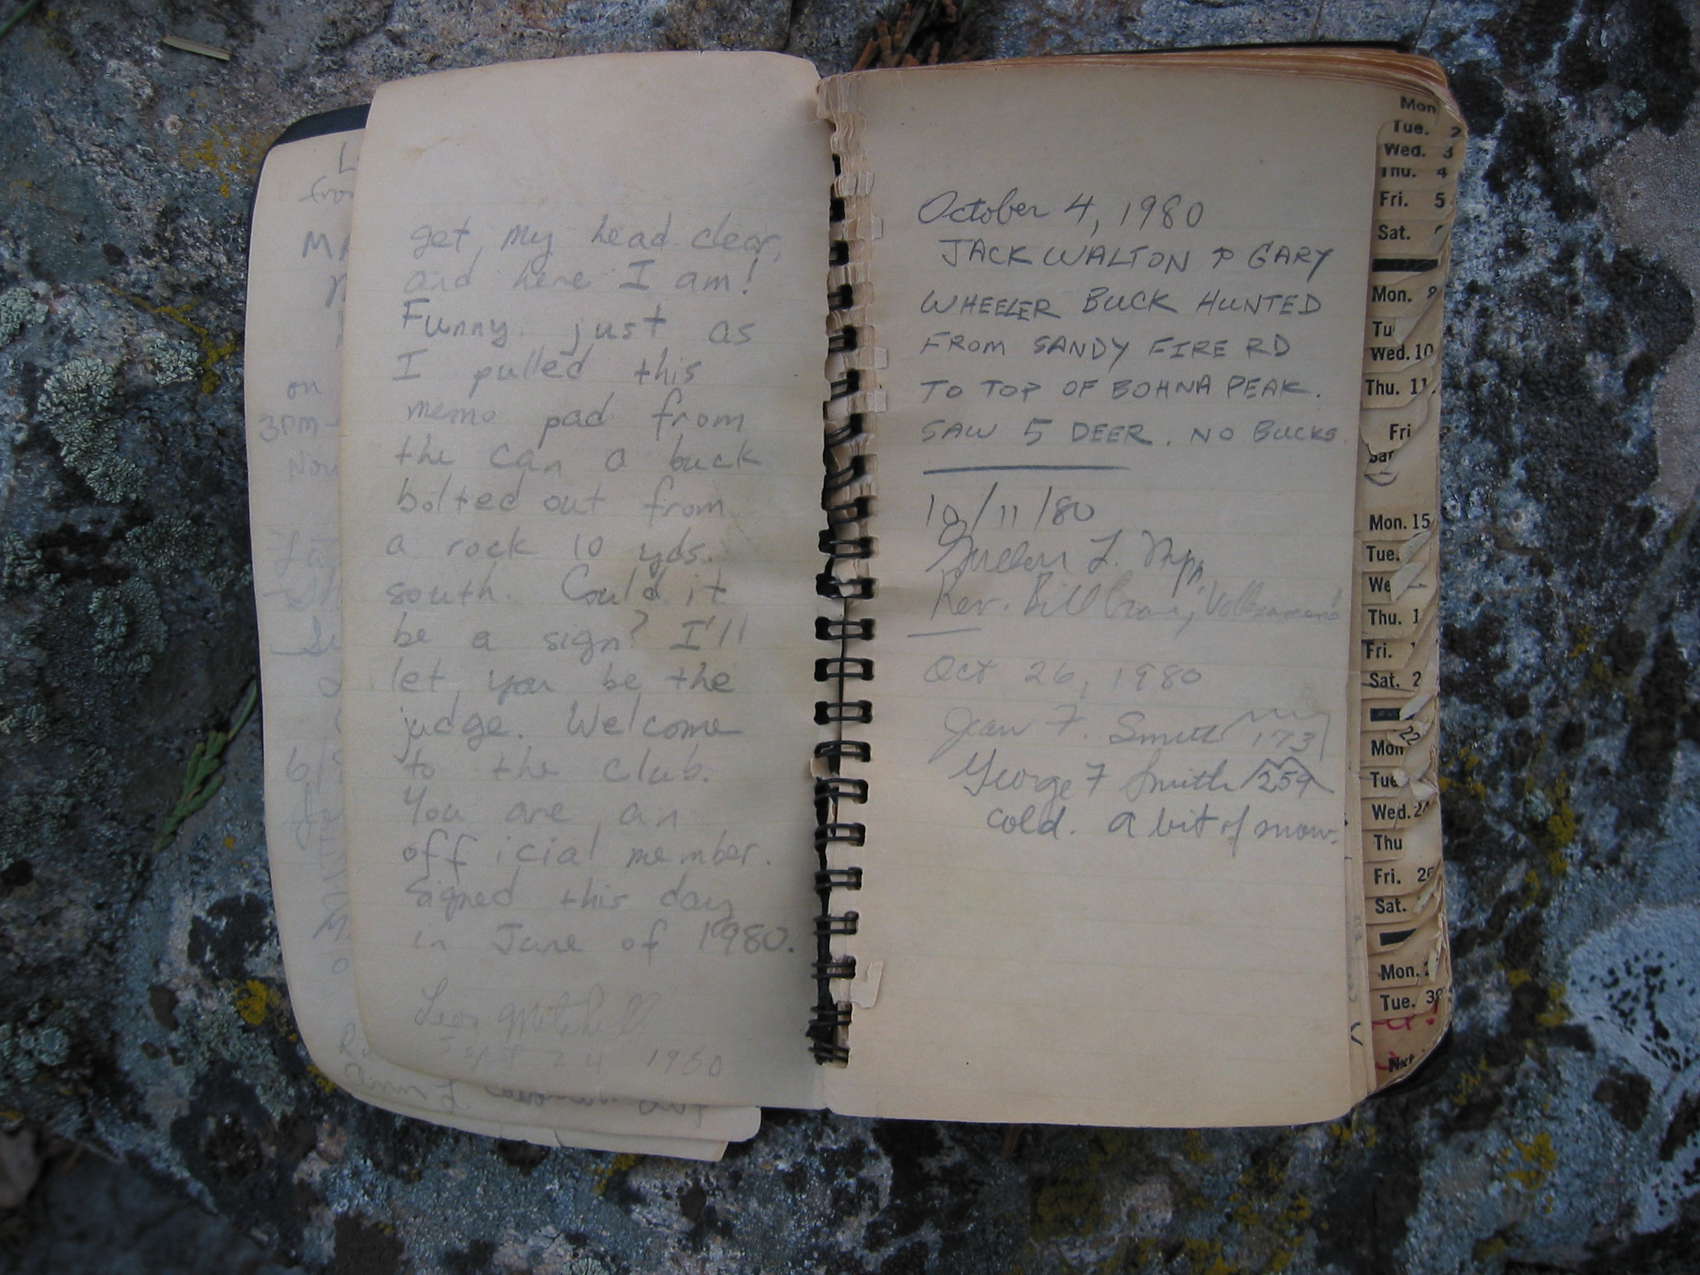 get my head clear,
and here I am!
Funny. just as
I pulled this
memo pad from
the can a buck
bolted out from
a rock 10 yds.
south. Could it
be a sign? I'll
let you be the
judge. Welcome
to the club.
You are an
official member.
Signed this day
in June of 1980.
Sept 24 1980
October 4, 1980
JACK WALTON & GARY
WHEELER BUCK HUNTED
FROM SANDY FIRE RD
TO TOP OF BOHNA PEAK.
SAW 5 DEER. NO BUCKS
10/11/80
Rev. Bill
Oct 26, 1980
Jean F. Smith 173
George F Smith 259
cold. a bit of snow.
on
3pm
Mon
Tue. 2
Wed. 3
Thu. 4
Fri. 5
Sat.
Mon.
Tu
Wed. 10
Thu. 11
Fri
Sat
Mon. 15
Tue.
We
Thu. 1
Fri.
Sat. 2
Mon 22
Tue
Wed. 24
Thu
Fri. 26
Sat.
Mon.
Tue. 30